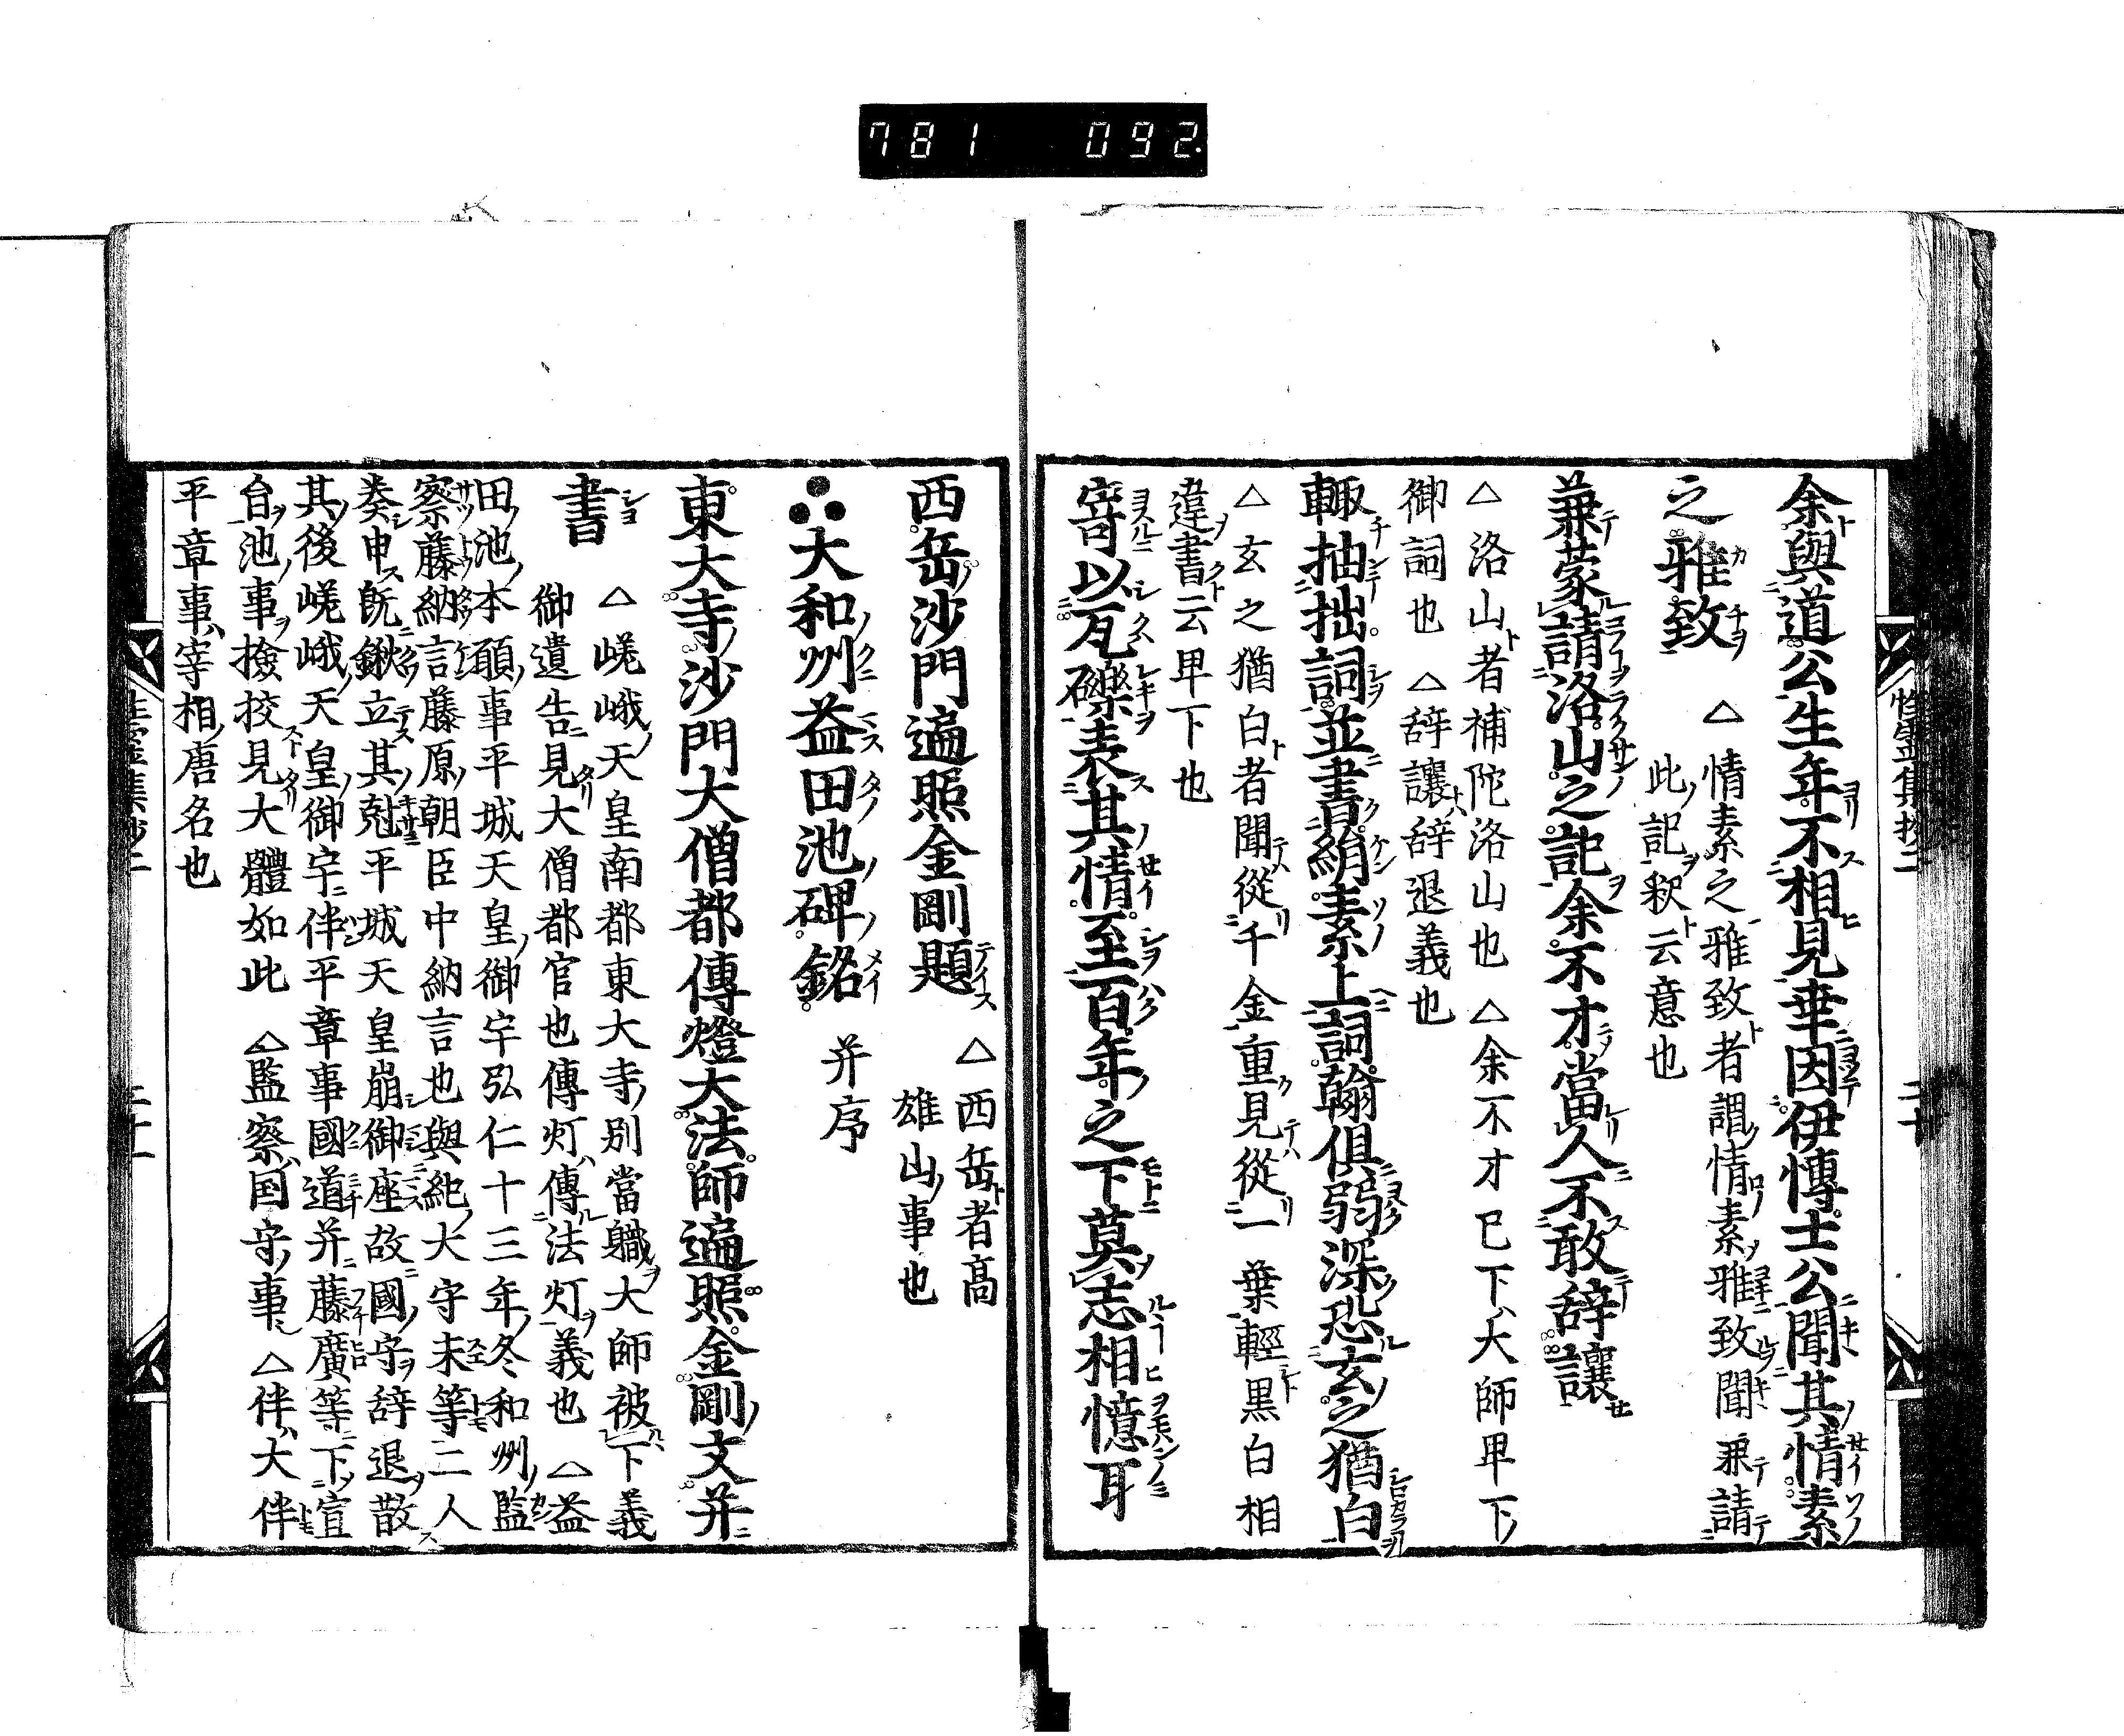 781 092
余與道公生年不相見幸因伊博士公聞其情素
之雅致
△情素之雅致者謂情素雅致聞兼請
此記釈云意也
兼蒙請洛山之記余不才當人不敢辞讓
△洛山者補陀洛山也△余不才已下大師卑下
御詞也△辞讓辞退義也
輙抽拙詞並書絹素上詞翰俱弱深恐玄之猶白
△玄之猶白者聞從千金重見從一葉輕黒白相
違書云卑下也
寄以瓦礫表其情至百年之下莫志相憶耳
西岳沙門遍照金剛題
△西岳者高
雄山事也
大和州益田池碑銘 并序
東大寺沙門大僧都傳燈大法師遍照金剛文并
書
△嵯峨天皇南都東大寺別當職大師被下義
御遺告見大僧都官也傳灯傳法灯義也△益
田池本願事平城天皇御宇弘仁十三年冬和州監
察藤納言藤原朝臣中納言也與紀大守末等二人
奏申既鍬立其尅平城天皇崩御座故國守辞退散
其後嵯峨天皇御宇伴平章事國道并藤廣等下宣
旨池事撿挍見大體如此△監察国守事△伴大伴
平章事宰相唐名也
性霊集抄二
二十
二十一